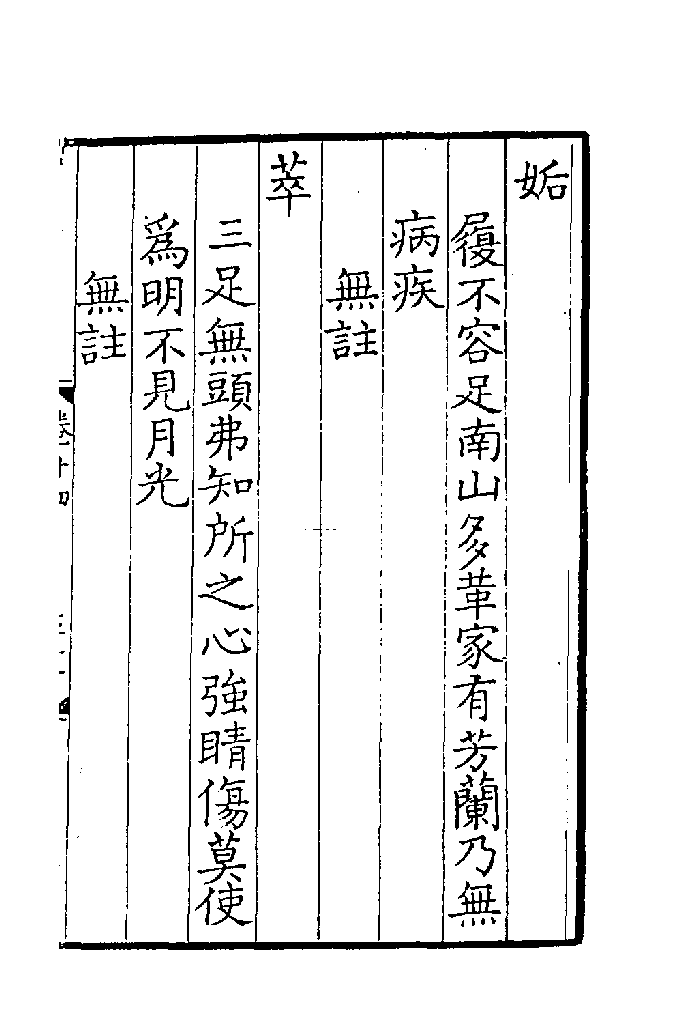 姤
履不容足南山多葷家有芳蘭乃無
病疾
無註
萃
三足無頭弗知所之心強睛傷莫使
爲明不見月光
無註
卷十四